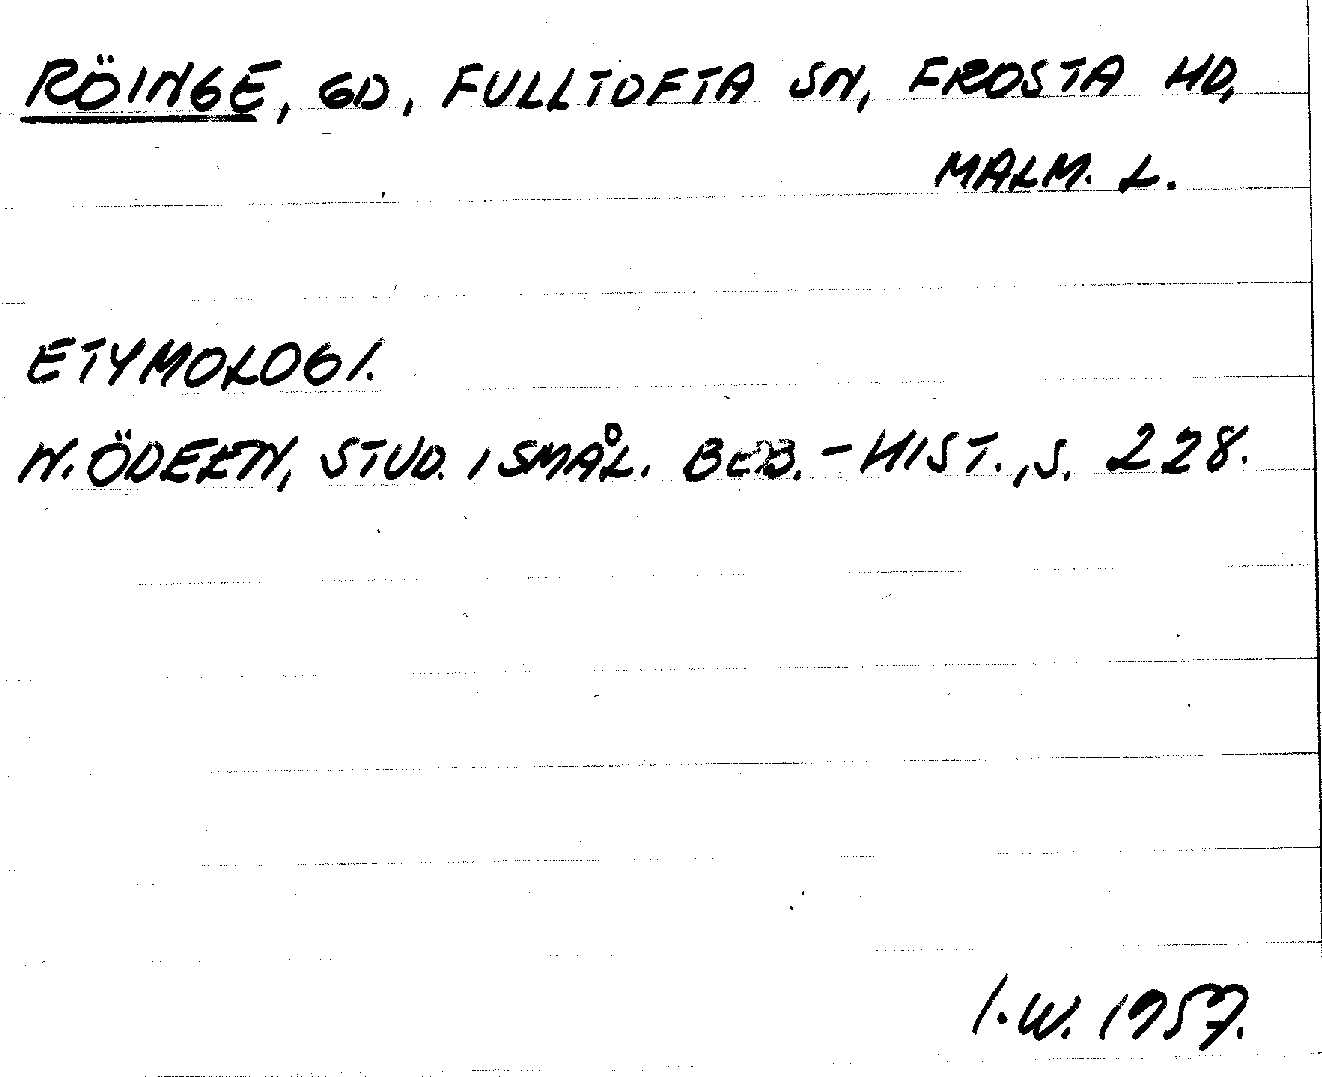 RÖINGE, GD, FULLTOFTA SN, FROSTA HD,
MALM. L.
ETYMOLOGI.
N. ÖDEEN, STUD. I SMÅL. BEB.-HIST., S. 228.
I.W. 1957.